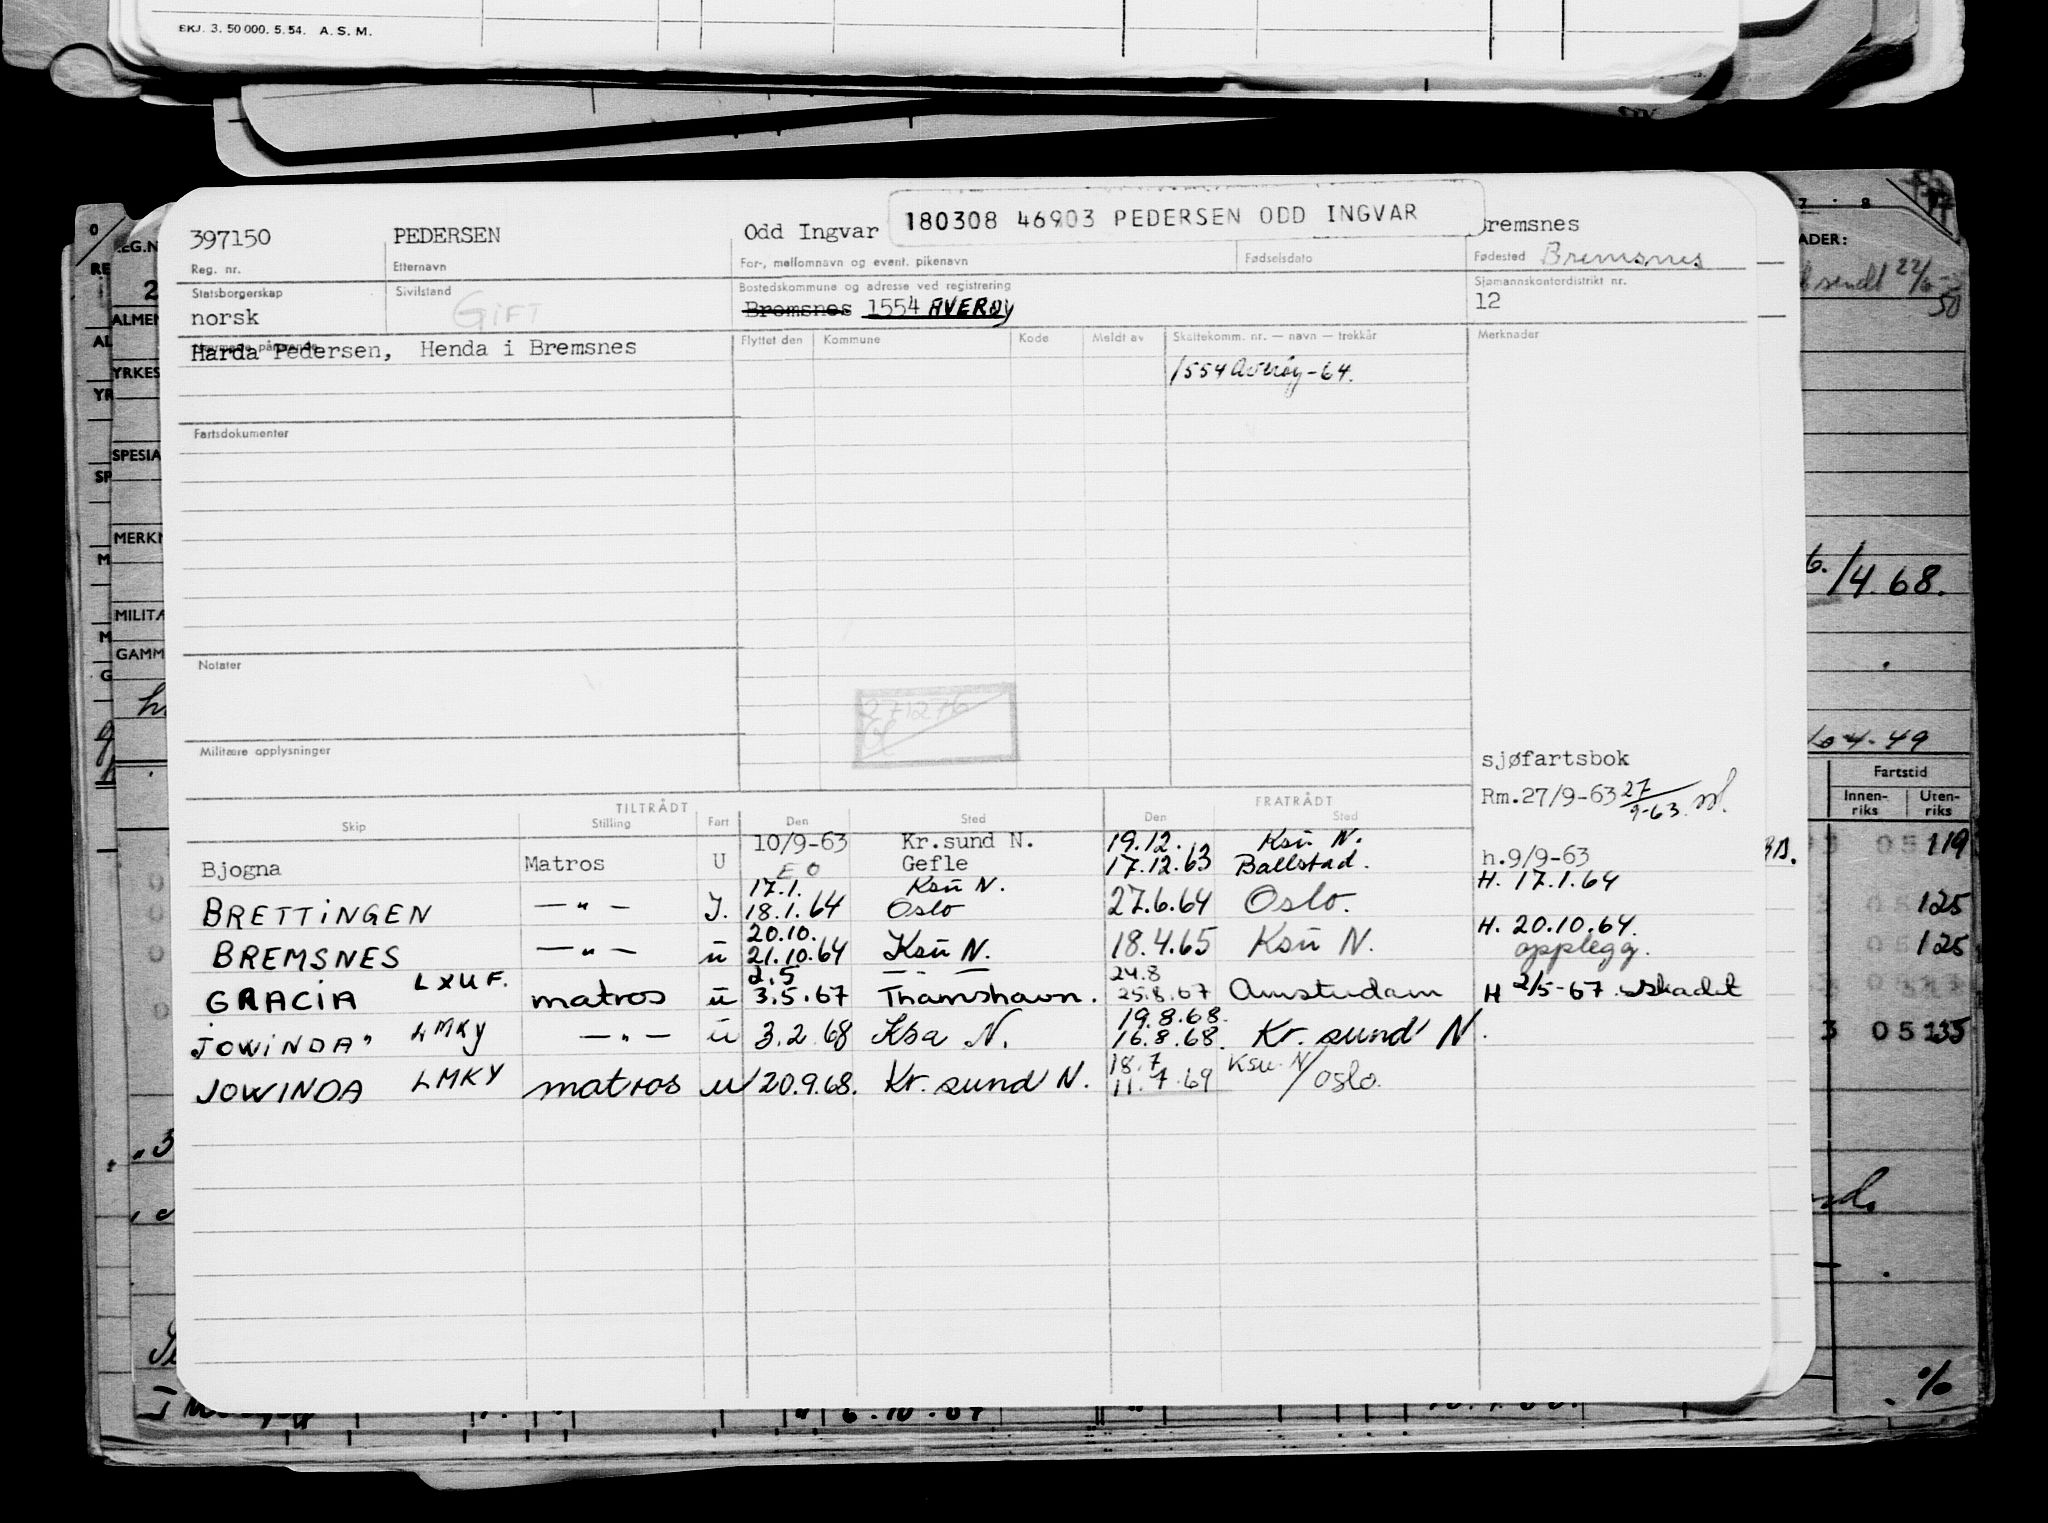 SKJ. 3. 50 000. 5. 54. A. S. M.
180308 46903 PEDERSEN ODD INGVAR
397150 PEDERSEN Odd Ingvar Bremsnes
Reg. nr. Etternavn For-, mellomnavn og event. pikenavn Fødselsdato Fødested Bremsnes
Statsborgerskap Sivilstand Bostedskommune og adresse ved registrering Sjømannskontordistrikt nr.
norsk GIFT Bremsnes 1554 AVERØY 12
Nærmeste pårørende Flyttet den Kommune Kode Meldt av Skattekomm. nr. — navn — trekkår Merknader
Harda Pedersen, Henda i Bremsnes
1554 Averøy-64.
Fartsdokumenter
Notater
Militære opplysninger
sjøfartsbok
Rm.27/9-63 27/9-63.
TILTRÅDT FRATRÅDT
Skip Stilling Fart Den Sted Den Sted
10/9-63 Kr.sund N. 19.12. Ksu N.
Bjogna Matros U EO Gefle 17.12.63 Ballstad. h.9/9-63
17.1. Ksu N. H. 17.1.64
BRETTINGEN — " — J. 18.1.64 Oslo 27.6.64 Oslo.
20.10. H. 20.10.64.
BREMSNES — " — u 21.10.64 Ksu N. 18.4.65 Ksu N. opplegg.
2.5 — — — 24.8
GRACIA LXUF. matros u 3.5.67 Thamshavn. 25.8.67 Amsterdam H 2/5-67. skadet
19.8.68.
JOWINDA" LMKY — " — u 3.2.68 Ksu N. 16.8.68. Kr. sund N.
18.7 Ksu. N/
JOWINDA LMKY matros u 20.9.68. Kr. sund N. 11.7.69 Oslo.
7 . 8
ADER:
sendt 22/6-50
6./4.68.
4-49
Fartstid
Innen-riks Uten-riks
119
125
125
3 05 135
REG.N
ALMEN
YRKES
SPESIA
MERKN
MILITÆ
GAMM
6.10.67